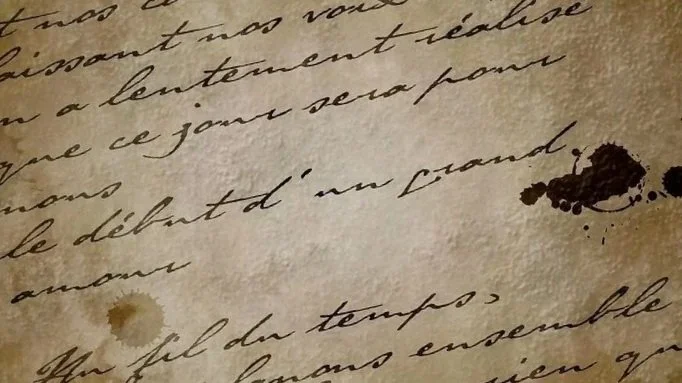 t nos
laissant nos voix
n a lentement réalisé
que ce jour sera pour
nous
le début d'un grand
amour
Au fil du temps,
ensemble